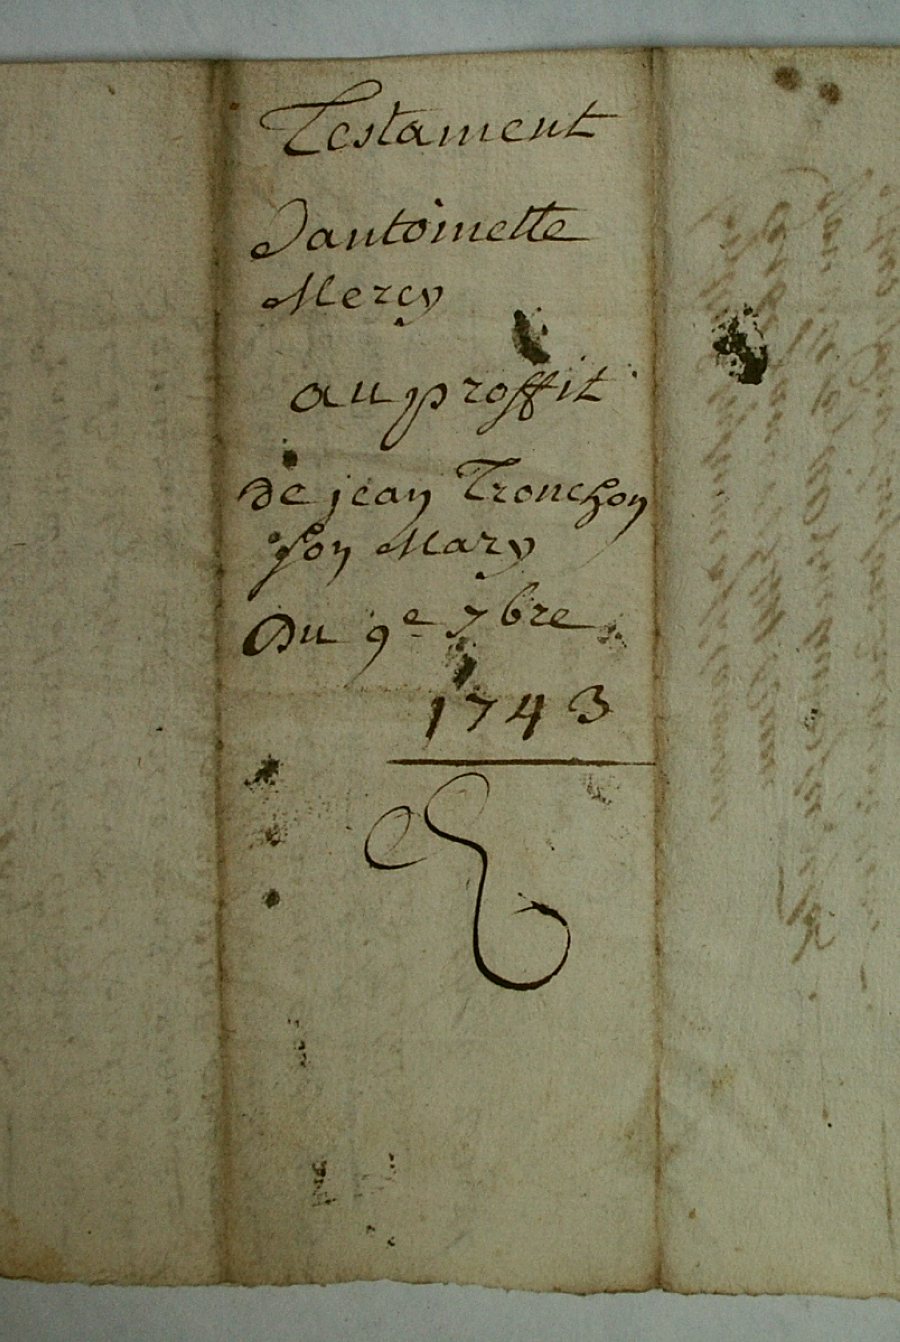 Testament
Dantoinette
Mercy
au proffit
de jean Tronchon
son Mary
Du 9e 7bre
1743